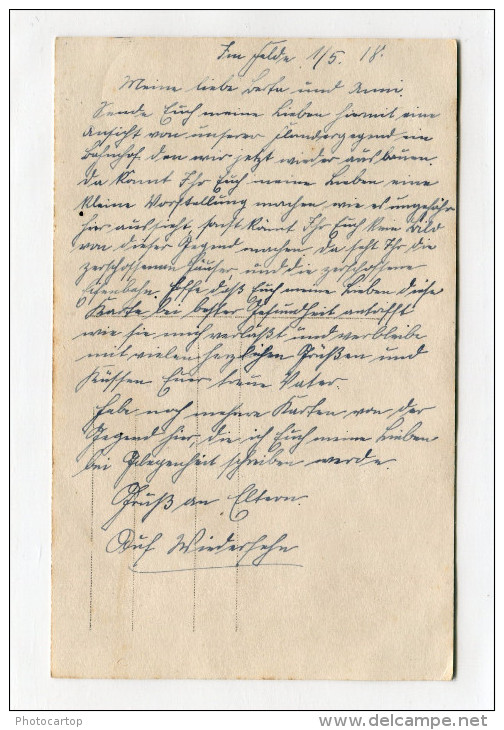 Im Felde 1/5. 18.
Meine liebe Berta und Anni.
Sende Euch meine Lieben hiermit eine
Ansicht von unserer Flandergegend ein
Bahnhof den wir jetzt wieder ausbauen.
Da könnt Ihr Euch meine Lieben eine
kleine Vorstellung machen, wie es ungefähr
hier aussieht, sonst könnt Ihr Euch kein Bild
von dieser Gegend machen, da seht Ihr die
zerschossenen Häuser, und die zerschossene
Eisenbahn. Hoffe daß Euch meine Lieben diese
Karte bei bester Gesundheit antrifft
wie sie mich verläßt und verbleibe
mit vielen herzlichen Grüßen und
Küssen Euer treue Vater.
Habe noch mehrere Karten von der
Gegend hier, die ich Euch meine Lieben
bei Gelegenheit schreiben werde.
Gruß an Eltern.
Auf Wiedersehn
Photocartop
http://www.delcampe.net